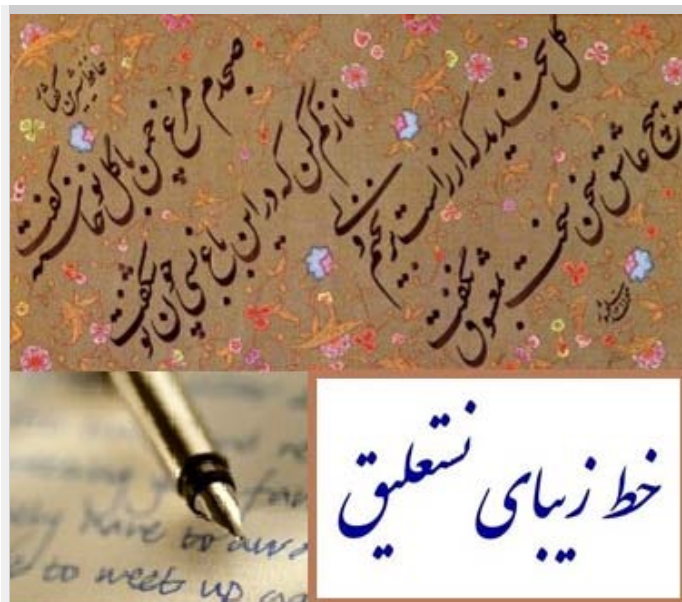 صبحدم مرغ چمن با گل نوخاسته گفت
ناز کم کن که در این باغ بسی چون تو شکفت
گل بخندید که از راست نرنجیم ولی
هیچ عاشق سخن سخت به معشوق نگفت
have to
to meet up
خط زیبای نستعلیق